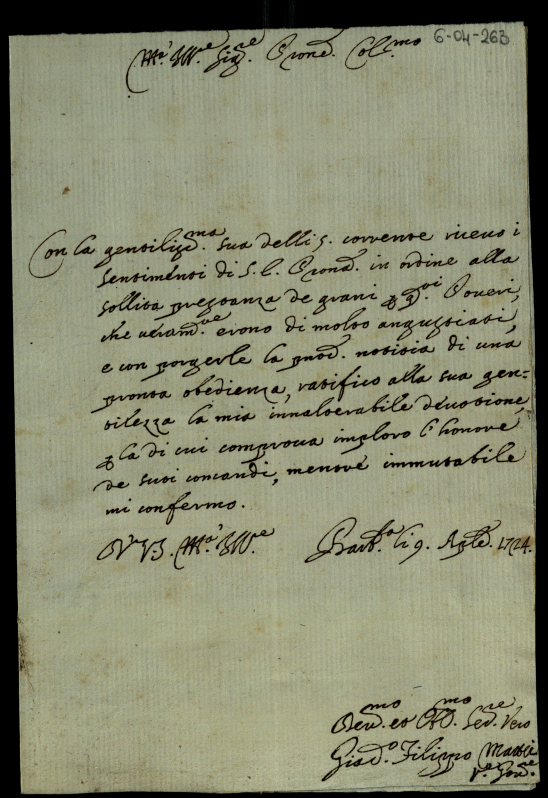 6-04-263
Mo. Ill.re Sig.re Pron.e Col.mo
Con la gentiliss.ma sua delli 5. corrente riceuo i
sentimenti di S. E. Prone. in ordine alla
sollita prestanza de grani p q.sti Poueri,
che veram.te erono di molto angustiati,
e con porgerle la pnte. notitia di una
pronta obedienza, ratifico alla sua gen-
tilezza la mia innalterabile deuotione,
p la di cui comproua imploro l'honore
de suoi comandi, mentre immutabile
mi confermo.
Di V. S. Mo. Ill.re
li 9. Aple. 1724.
Deu.mo et Obb.mo Ser.re Vero
Filippo